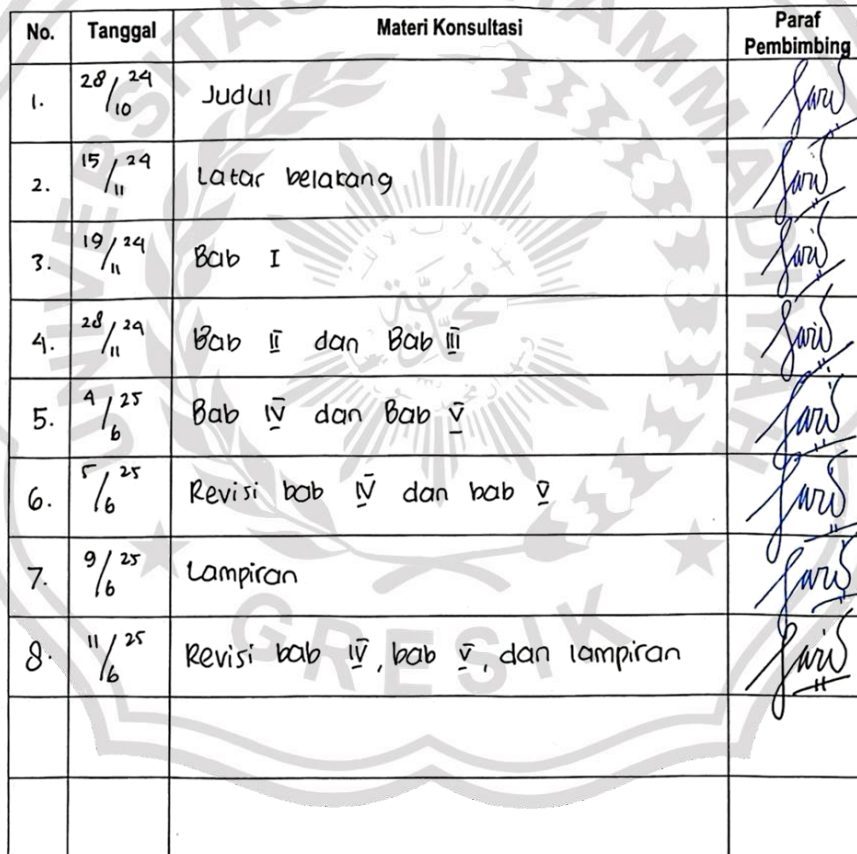 UNIVERSITAS MUHAMMADIYAH
GRESIK
No. Tanggal Materi Konsultasi Paraf Pembimbing
1. 28/10 24 Judul
2. 15/11 24 Latar belakang
3. 19/11 24 Bab I
4. 28/11 24 Bab II dan Bab III
5. 4/6 25 Bab IV dan Bab V
6. 5/6 25 Revisi bab IV dan bab V
7. 9/6 25 Lampiran
8. 11/6 25 Revisi bab IV, bab V, dan lampiran